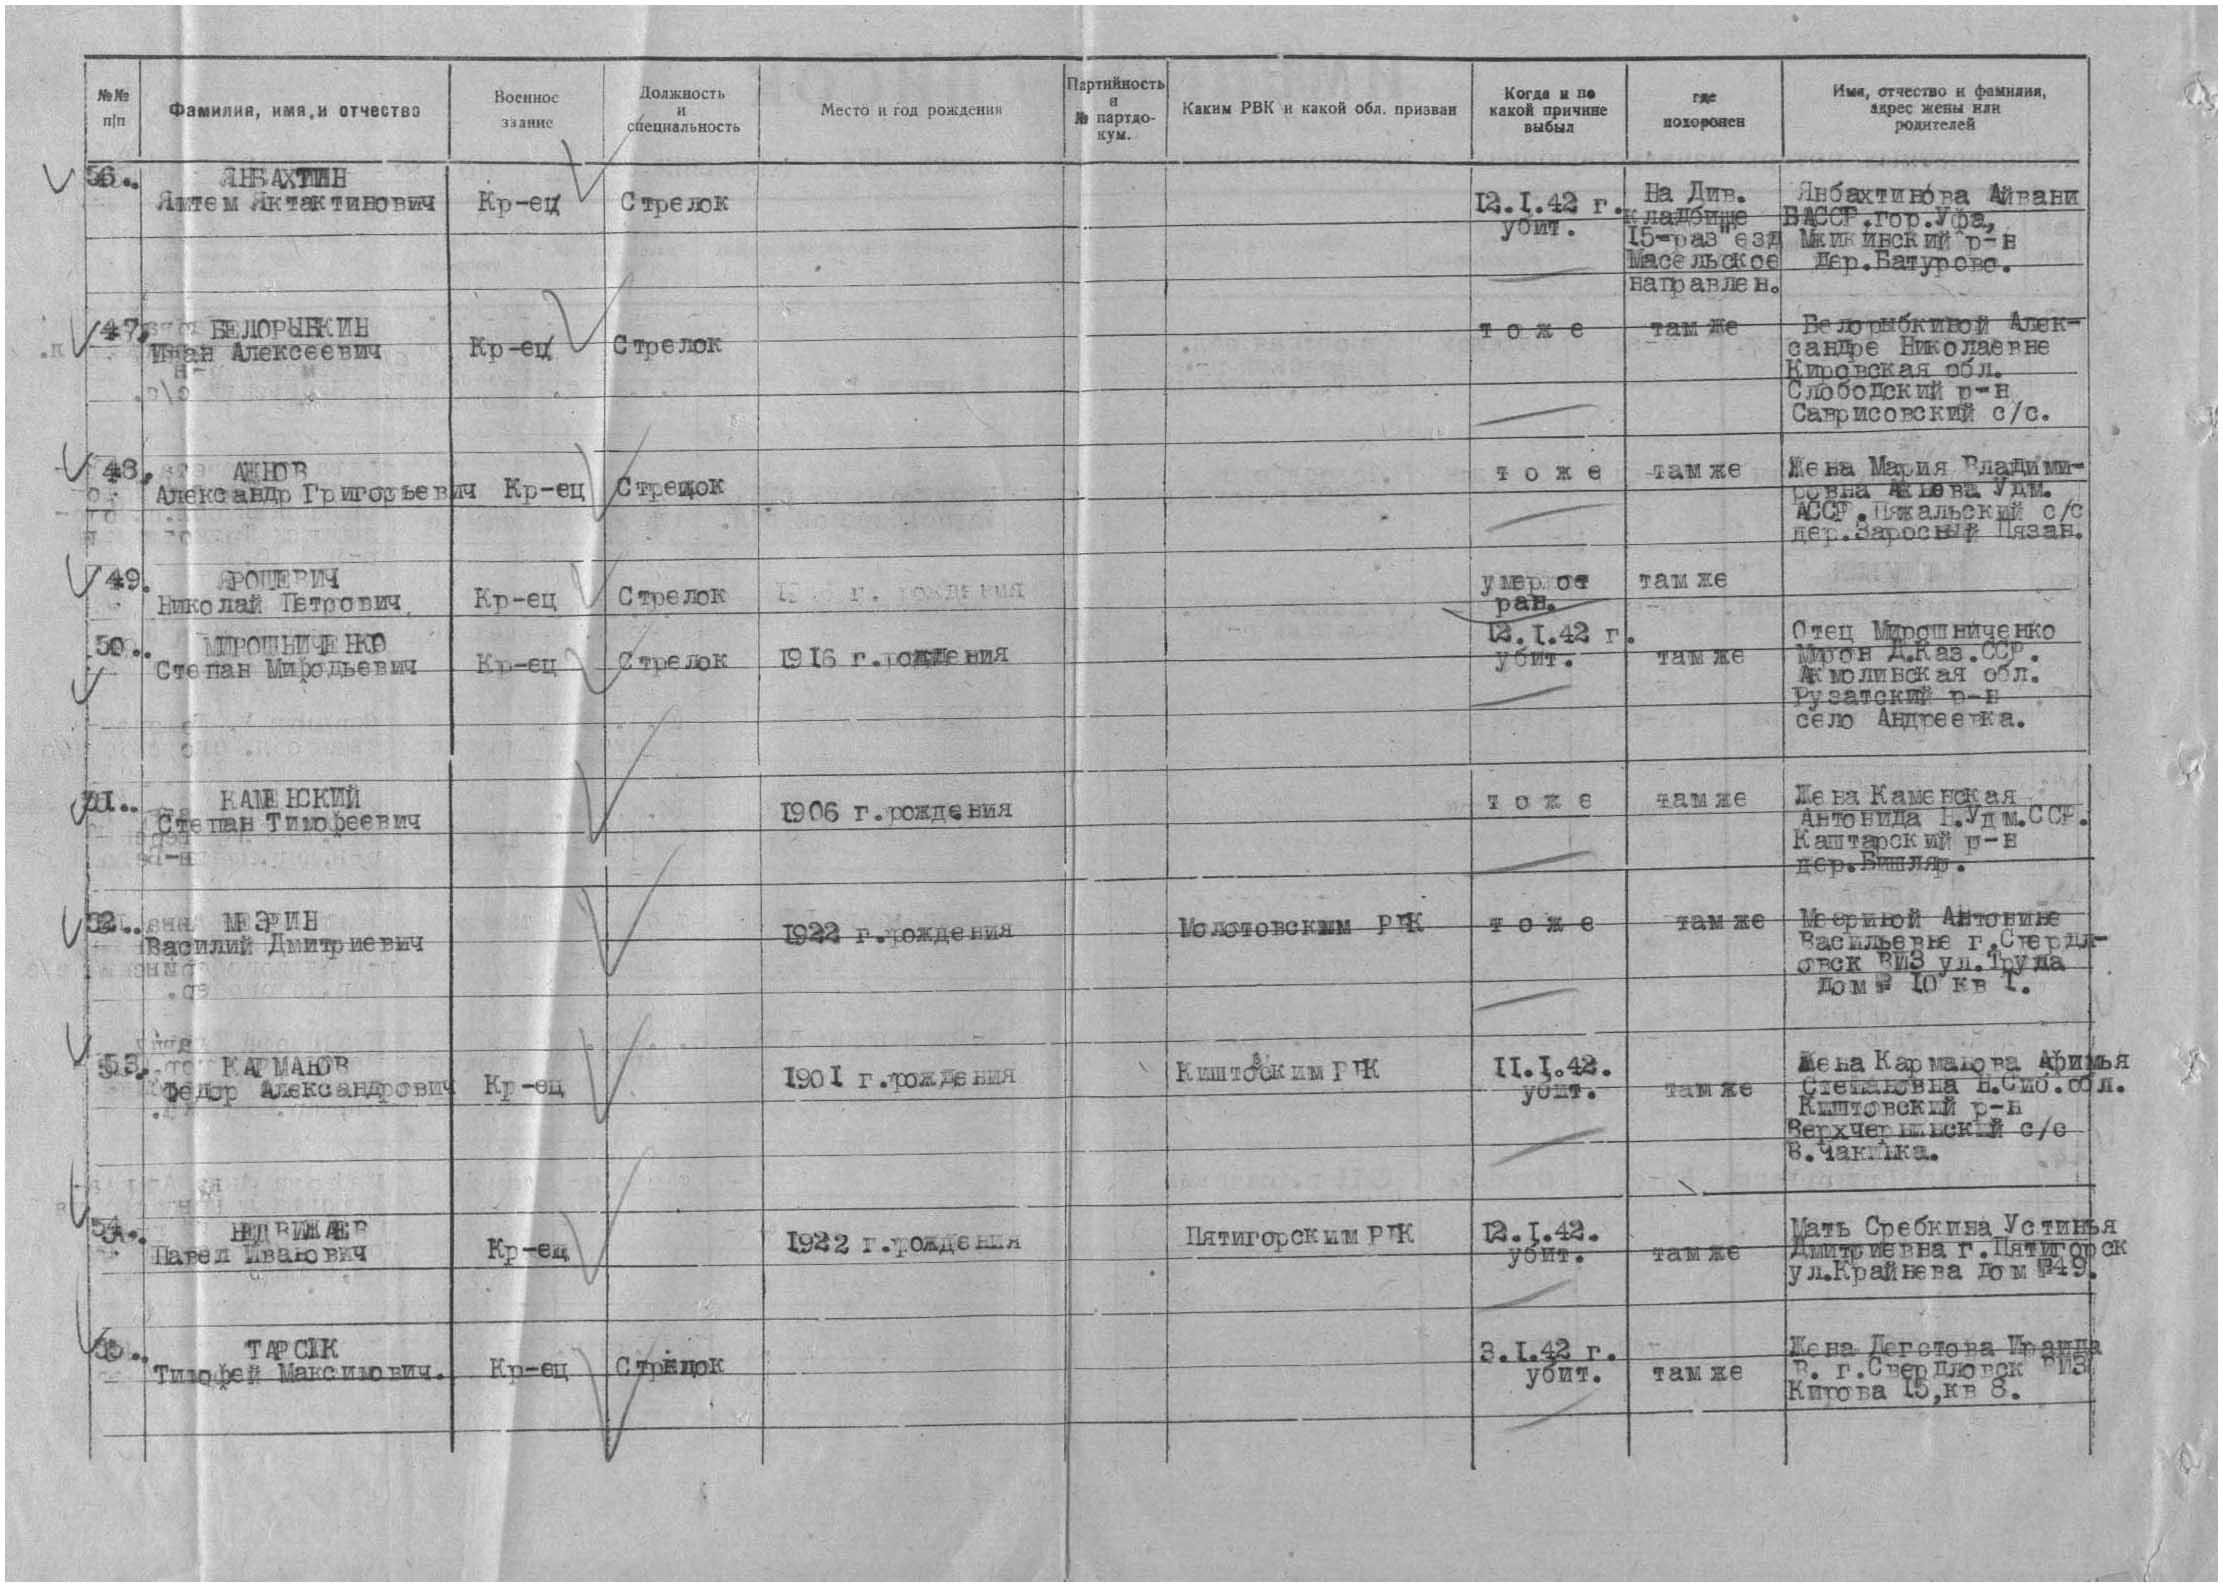 №№ п|п
Фамилия, имя, и отчество
Военное звание
Должность и специальность
Место и год рождения
Партийность и № партдо-кум.
Каким РВК и какой обл. призван
Когда и по какой причине выбыл
где похоронен
Имя, отчество и фамилия, адрес жены или родителей
56.. ЯНБАХТИН
Яштем Яктактинович Кр-ец Стрелок 12.I.42 г. убит.
На Див.
кладбище
15-раз"езд
Масельское
направлен.
Янбахтинова Айвани
БАССР.гор.Уфа,
Мжикинский р-н
дер.Батурово.
47. БЕЛОРЫБКИН
Иван Алексеевич Кр-ец Стрелок т о ж е там же
Белорыбкиной Алек-
сандре Николаевне
Кировская обл.
Слободский р-н
Саврисовский с/с.
48. АЖНОВ
Александр Григорьевич Кр-ец Стрелок т о ж е там же
Жена Мария Владими-
ровна Ажнова Удм.
АССР. Пяжальский с/с
дер.Заросный Пязан.
49. ЯРОШЕВИЧ
Николай Петрович Кр-ец Стрелок г. рождения умер от ран. там же
50.. МИРОШНИЧЕНКО
Степан Миродьевич Кр-ец Стрелок 1916 г.рождения 12.I.42 г. убит. там же
Отец Мирошниченко
Мирон Д.Каз.ССР.
Акмолинская обл.
Рузатский р-н
село Андреевка.
51.. КАМЕНСКИЙ
Степан Тимофеевич 1906 г.рождения т о ж е там же
Жена Каменская
Антонида Н.Удм.ССР.
Каштарский р-н
дер.Бишляр.
52.. МЕЗРИН
Василий Дмитриевич 1922 г.рождения Молотовским РВК т о ж е там же
Мезриной Антонине
Васильевне г.Свердл-
овск ВИЗ ул.Труда
дом № 10 кв 1.
53. КАРМАНОВ
Федор Александрович Кр-ец 1901 г.рождения Киштовским РВК 11.I.42. убит. там же
Жена Карманова Афимья
Степановна Н.Сиб.обл.
Киштовский р-н
Верхчернинский с/с
В.Чакишка.
54.. НЕДВИЖАЕВ
Павел Иванович Кр-ец 1922 г.рождения Пятигорским РВК 12.I.42. убит. там же
Мать Сребкина Устинья
Дмитриевна г.Пятигорск
ул.Крайнева дом №49.
55.. ТАРСИК
Тимофей Максимович. Кр-ец Стрелок 3.I.42 г. убит. там же
Жена Дегстова Ираида
В. г.Свердловск ВИЗ
Кирова 15,кв 8.